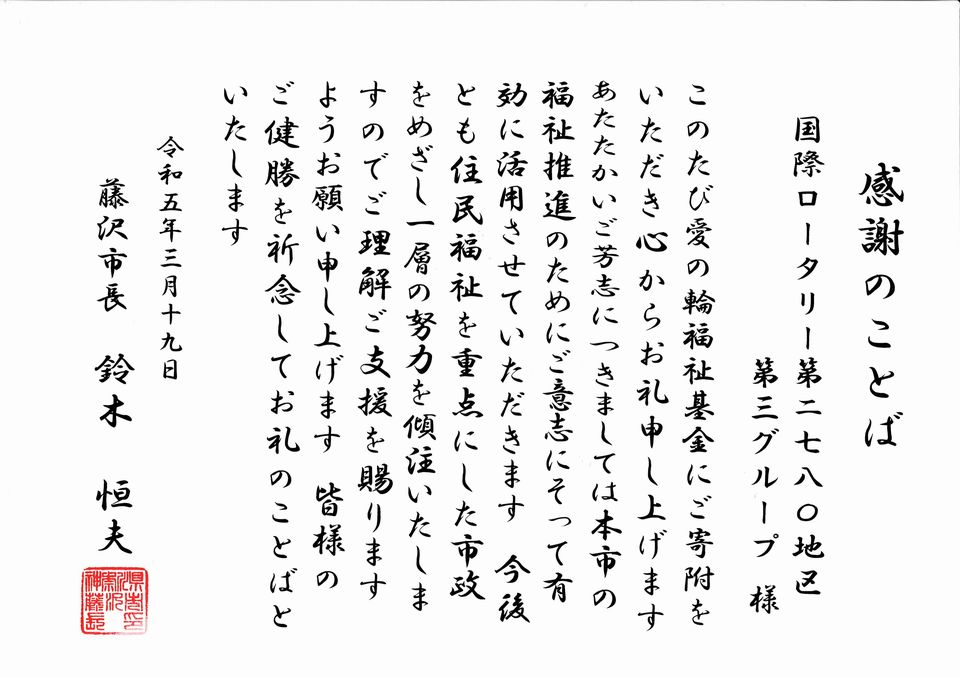 感謝のことば
国際ロータリー第二七八〇地区
第三グループ 様
このたび愛の輪福祉基金にご寄附を
いただき心からお礼申し上げます
あたたかいご芳志につきましては本市の
福祉推進のためにご意志にそって有
効に活用させていただきます 今後
とも住民福祉を重点にした市政
をめざし一層の努力を傾注いたしま
すのでご理解ご支援を賜ります
ようお願い申し上げます 皆様の
ご健勝を祈念してお礼のことばと
いたします
令和五年三月十九日
藤沢市長 鈴木 恒夫